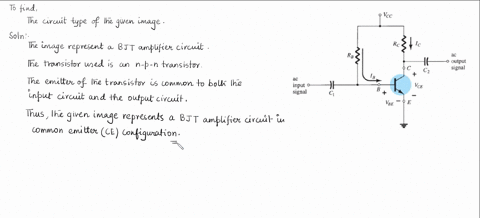 To find.
The circuit type of the given image.
Soln:
The image represent a BJT amplifier circuit.
The transistor used is an n-p-n transistor.
The emitter of the transistor is common to both the
input circuit and the output circuit.
Thus, the given image represents a BJT amplifier circuit in
common emitter (CE) configuration.
VCC
RC
IC
RB
ac
output
signal
C2
C
+
IB
ac
input
signal
C1
B
+
VCE
VBE
−
E
−